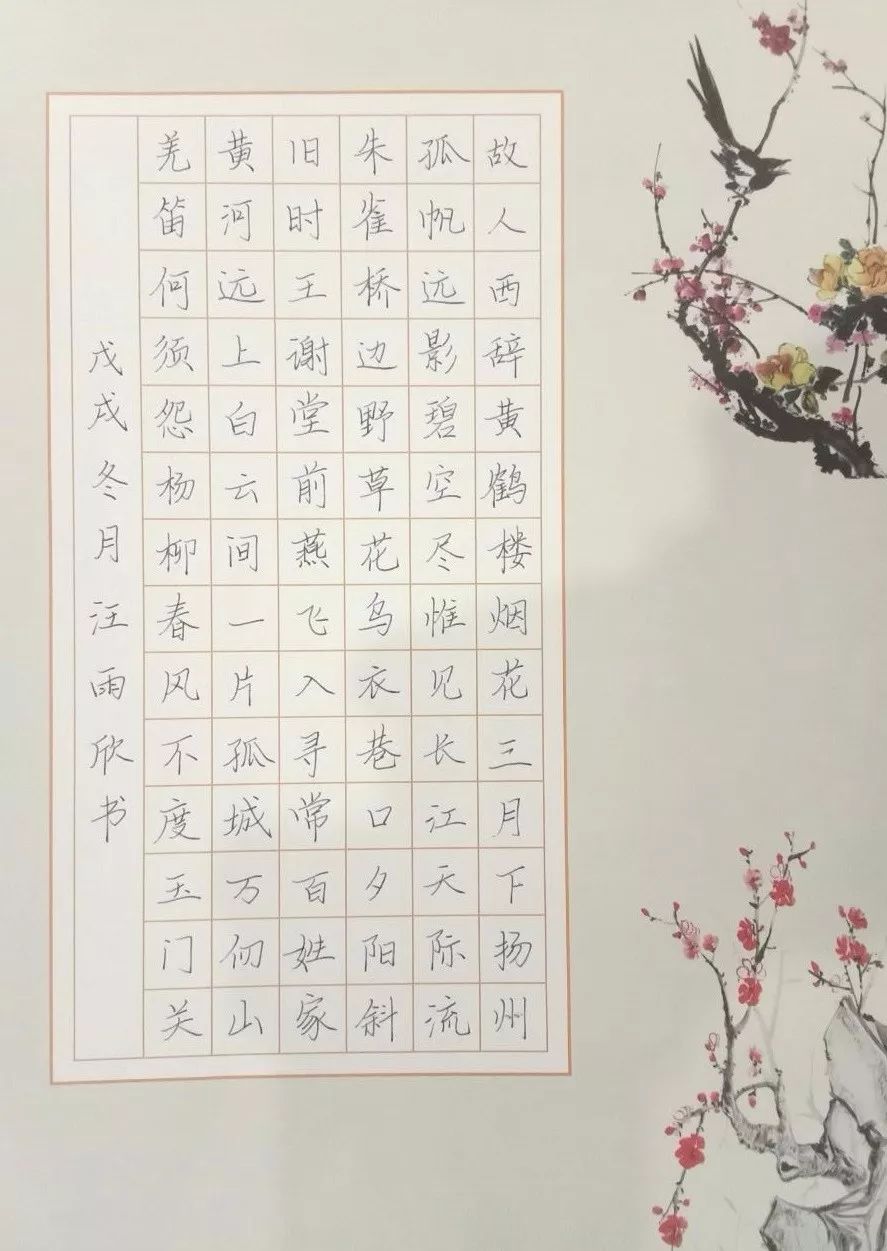 故人西辞黄鹤楼烟花三月下扬州
孤帆远影碧空尽惟见长江天际流
朱雀桥边野草花乌衣巷口夕阳斜
旧时王谢堂前燕飞入寻常百姓家
黄河远上白云间一片孤城万仞山
羌笛何须怨杨柳春风不度玉门关
戊戌冬月汪雨欣书